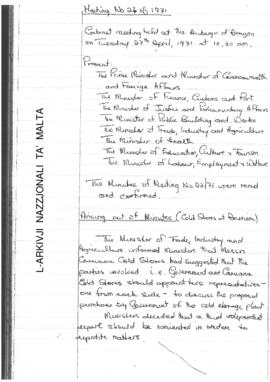 Meeting No 23/71
Cabinet meeting held at the Auberge d'Aragon
on Tuesday 27th April, 1971 at 10.30 am.
Present:
The Prime Minister and Minister of Commonwealth
and Foreign Affairs
The Minister of Finance, Customs and Port
The Minister of Justice and Parliamentary Affairs
The Minister of Public Building and Works
The Minister of Trade, Industry and Agriculture
The Minister of Health
The Minister of Education, Culture & Tourism
The Minister of Labour, Employment & Welfare
The Minutes of Meeting No 22/71 were read
and confirmed.
Arising out of Minutes (Cold Stores at
The Minister of Trade, Industry and
Agriculture informed Ministers that Messrs
Cold Stores had suggested that the
parties involved i.e. Government and
Cold Stores should appoint two representatives -
one from each side - to discuss the proposed
purchase by Government of the cold storage plant
Ministers decided that a third independent
expert should be nominated in order to
expedite matters.
L-ARKIVJI NAZZJONALI TA' MALTA